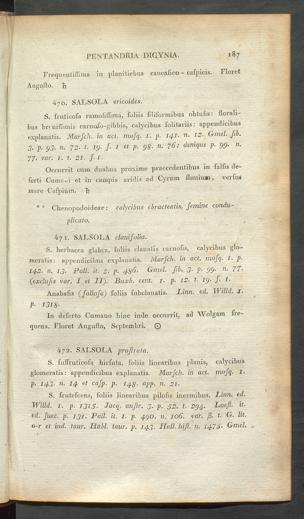 PENTANDRIA DIGYNIA. 187
Frequentissima in planitiebus caucaſico-caſpicis. Floret
Auguſto. ♄
470. SALSOLA ericoides.
S. fruticoſa ramoſiſſima, foliis filiformibus obtuſis: florali-
bus breviſſimis carnoſo-gibbis, calycibus ſolitariis: appendicibus
explanatis. Marſch. in act. moſq. 1. p. 141. n. 12. Gmel. ſib.
3. p. 93. n. 72. t. 19. f. 1 et p. 98. n. 76: denique p. 99. n.
77. var. 1. t. 21. f. 1.
Occurrit cum duabus proxime praecedentibus in ſalſis de-
ſerti et in campis aridis ad Cyrum verſus
mare Caſpium. ♄
** Chenopodoideae: calycibus ebracteatis, ſemine condu-
plicato.
471. SALSOLA clavifolia.
S. herbacea glabra, foliis clavatis carnoſis, calycibus glo-
meratis: appendicibus explanatis. Marſch. in act. moſq. 1. p.
142. n. 13. Pall. it. 3. p. 486. Gmel. ſib. 3. p. 99. n. 77.
(excluſis var. I et II). Buxb. cent. 1. p. 12. t. 19. f. 1.
Anabaſis (folioſa) foliis ſubclavatis. Linn. ed. Willd. 1.
p. 1318.
In deſerto Cumano hinc inde occurrit, ad Wolgam fre-
quens. Floret Auguſto, Septembri. ☉
472. SALSOLA proſtrata.
S. ſuffruticoſa hirſuta, foliis linearibus planis, calycibus
glomeratis: appendicibus explanatis. Marſch. in act. moſq. 1.
p. 143. n. 14 et caſp. p. 148. app. n. 21.
S. fruteſcens, foliis linearibus piloſis inermibus. Linn. ed.
Willd. 1. p. 1315. Jacq. auſtr. 3. p. 52. t. 294. Loefl. it.
ed. ſuec. p. 131. Pall. it. 1. p. 490. n. 106. var. β. t. G. lit.
et ind. taur. Habl. taur. p. 143. Hall. hiſt. n. 1475. Gmel.